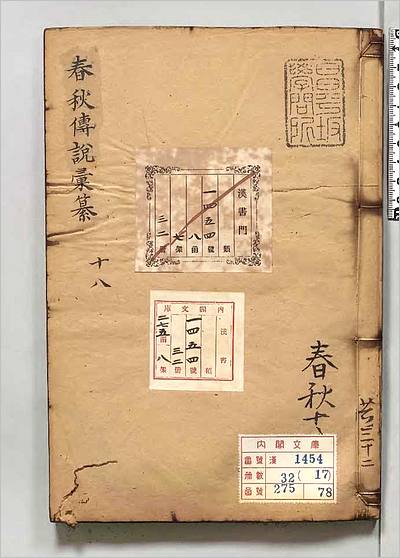 春秋傳說彙纂
十八
昌平坂
學問所
漢書門
類
一四五四號
八函
七架
三二冊
內閣文庫
漢書
一四五四號
三二冊
二七五函
八架
春秋十
共三十二
內閣文庫
番號 漢 1454
冊數 32(17)
函號 275 78